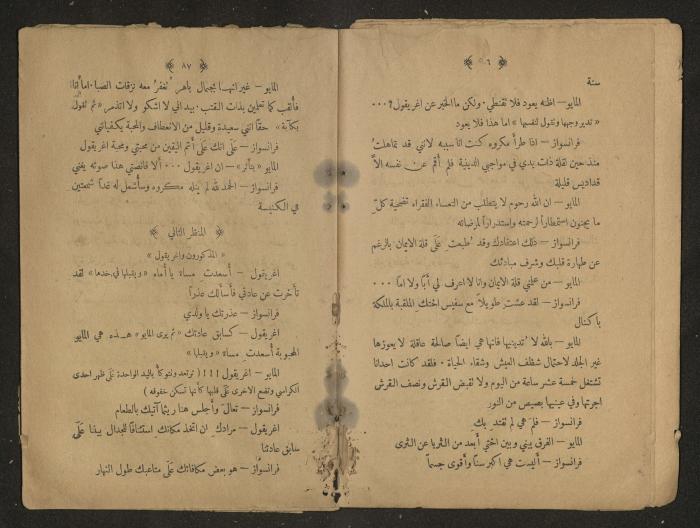 ﴿ ٥٦ ﴾
سنة
المايو – اظنه يعود فلا تقنطي . ولكن ما الخبر عن اغريقول ? ...
« تدير وجهها وتقول لنفسها » اما هذا فلا يعود
فرانسواز – اذا طرأ مكروه كنت انا سببه لانني قد تماهلت
منذ حين لقلة ذات يدي في مواجبي الدينية فلم أقم عن نفسه الاَّ
قداديس قليلة
المايو – ان الله رحوم لا يتطلب من التعساء الفقراء تضحية كل
ما يجنون استمطاراً لرحمته واستدراراً لمرضاته
فرانسواز – ذلك اعتقادك وقد طبعت على قلة الايمان بالرغم
عن طهارة قلبك وشرف مبادئك
المايو – من علمني قلة الايمان وانا لا اعرف لي أبًا ولا اماً ...
فرانسواز – لقد عشت طويلاً مع سفيس اختك الملقبة بالملكة
باكنال
المايو – بالله لا تدينيها فانها هي ايضاً صالحة عاقلة لا يعوزها
غير الجلد لاحتمال شظف العيش وشقاء الحياة . فلقد كانت احدانا
تشتغل خمسة عشر ساعة من اليوم ولا تقبض القرش ونصف القرش
اجرتها وفي عينيها بصيص من النور
فرانسواز – فلمَ هي لم تقتد بكِ
المايو – الفرق بيني وبين اختي أبعد من الثريا عن الثرى
فرانسواز – أليست هي اكبر سناً وأقوى جسماً
﴿ ٨٧ ﴾
المايو – غير انها بجمال باهر تُغفر معه نزقات الصبا . اما أنا
فألقب كما تعلمين بذات القتب . بيد اني لا اشكو ولا اتذمر « ثم تقول
بكآبة » حقاً انني سعيدة وقليل من الانعطاف والمحبة يكفياني
فرانسواز – على انك على أتم اليقين من محبتي ومحبة اغريقول
المايو « بتأثر » – ان اغريقول ... ألا فانصتي هذا صوته يغني
فرانسواز – الحمد لله لم ينله مكروه وسأشعل له غداً شمعتين
في الكنيسة
﴿ المنظر الثاني ﴾
« المذكورون واغريقول »
اغريقول – أسعدتِ مساء يا أماه « ويقبلها في خدها » لقد
تأخرت عن عادتي فأسألك عذراً
فرانسواز – عذرتك يا ولدي
اغريقول – كسابق عادتك « ثم يرى المايو » هذه هي المايو
المحبوبة أسعدتِ مساء « ويقبلها »
المايو – اغريقول !!!! ( ترتعد وتتوكأ باليد الواحدة على ظهر احدى
الكراسي وتضع الاخرى على قلبها كأنها تسكن خفوقه )
فرانسواز – تعال وأجلس هنا ريثما آتيك بالطعام
اغريقول – مرادكِ ان اتخذ مكانك استئنافاً للجدال بيننا على
سابق عادتنا
فرانسواز – هو بعض مكافاتك على متاعبك طول النهار